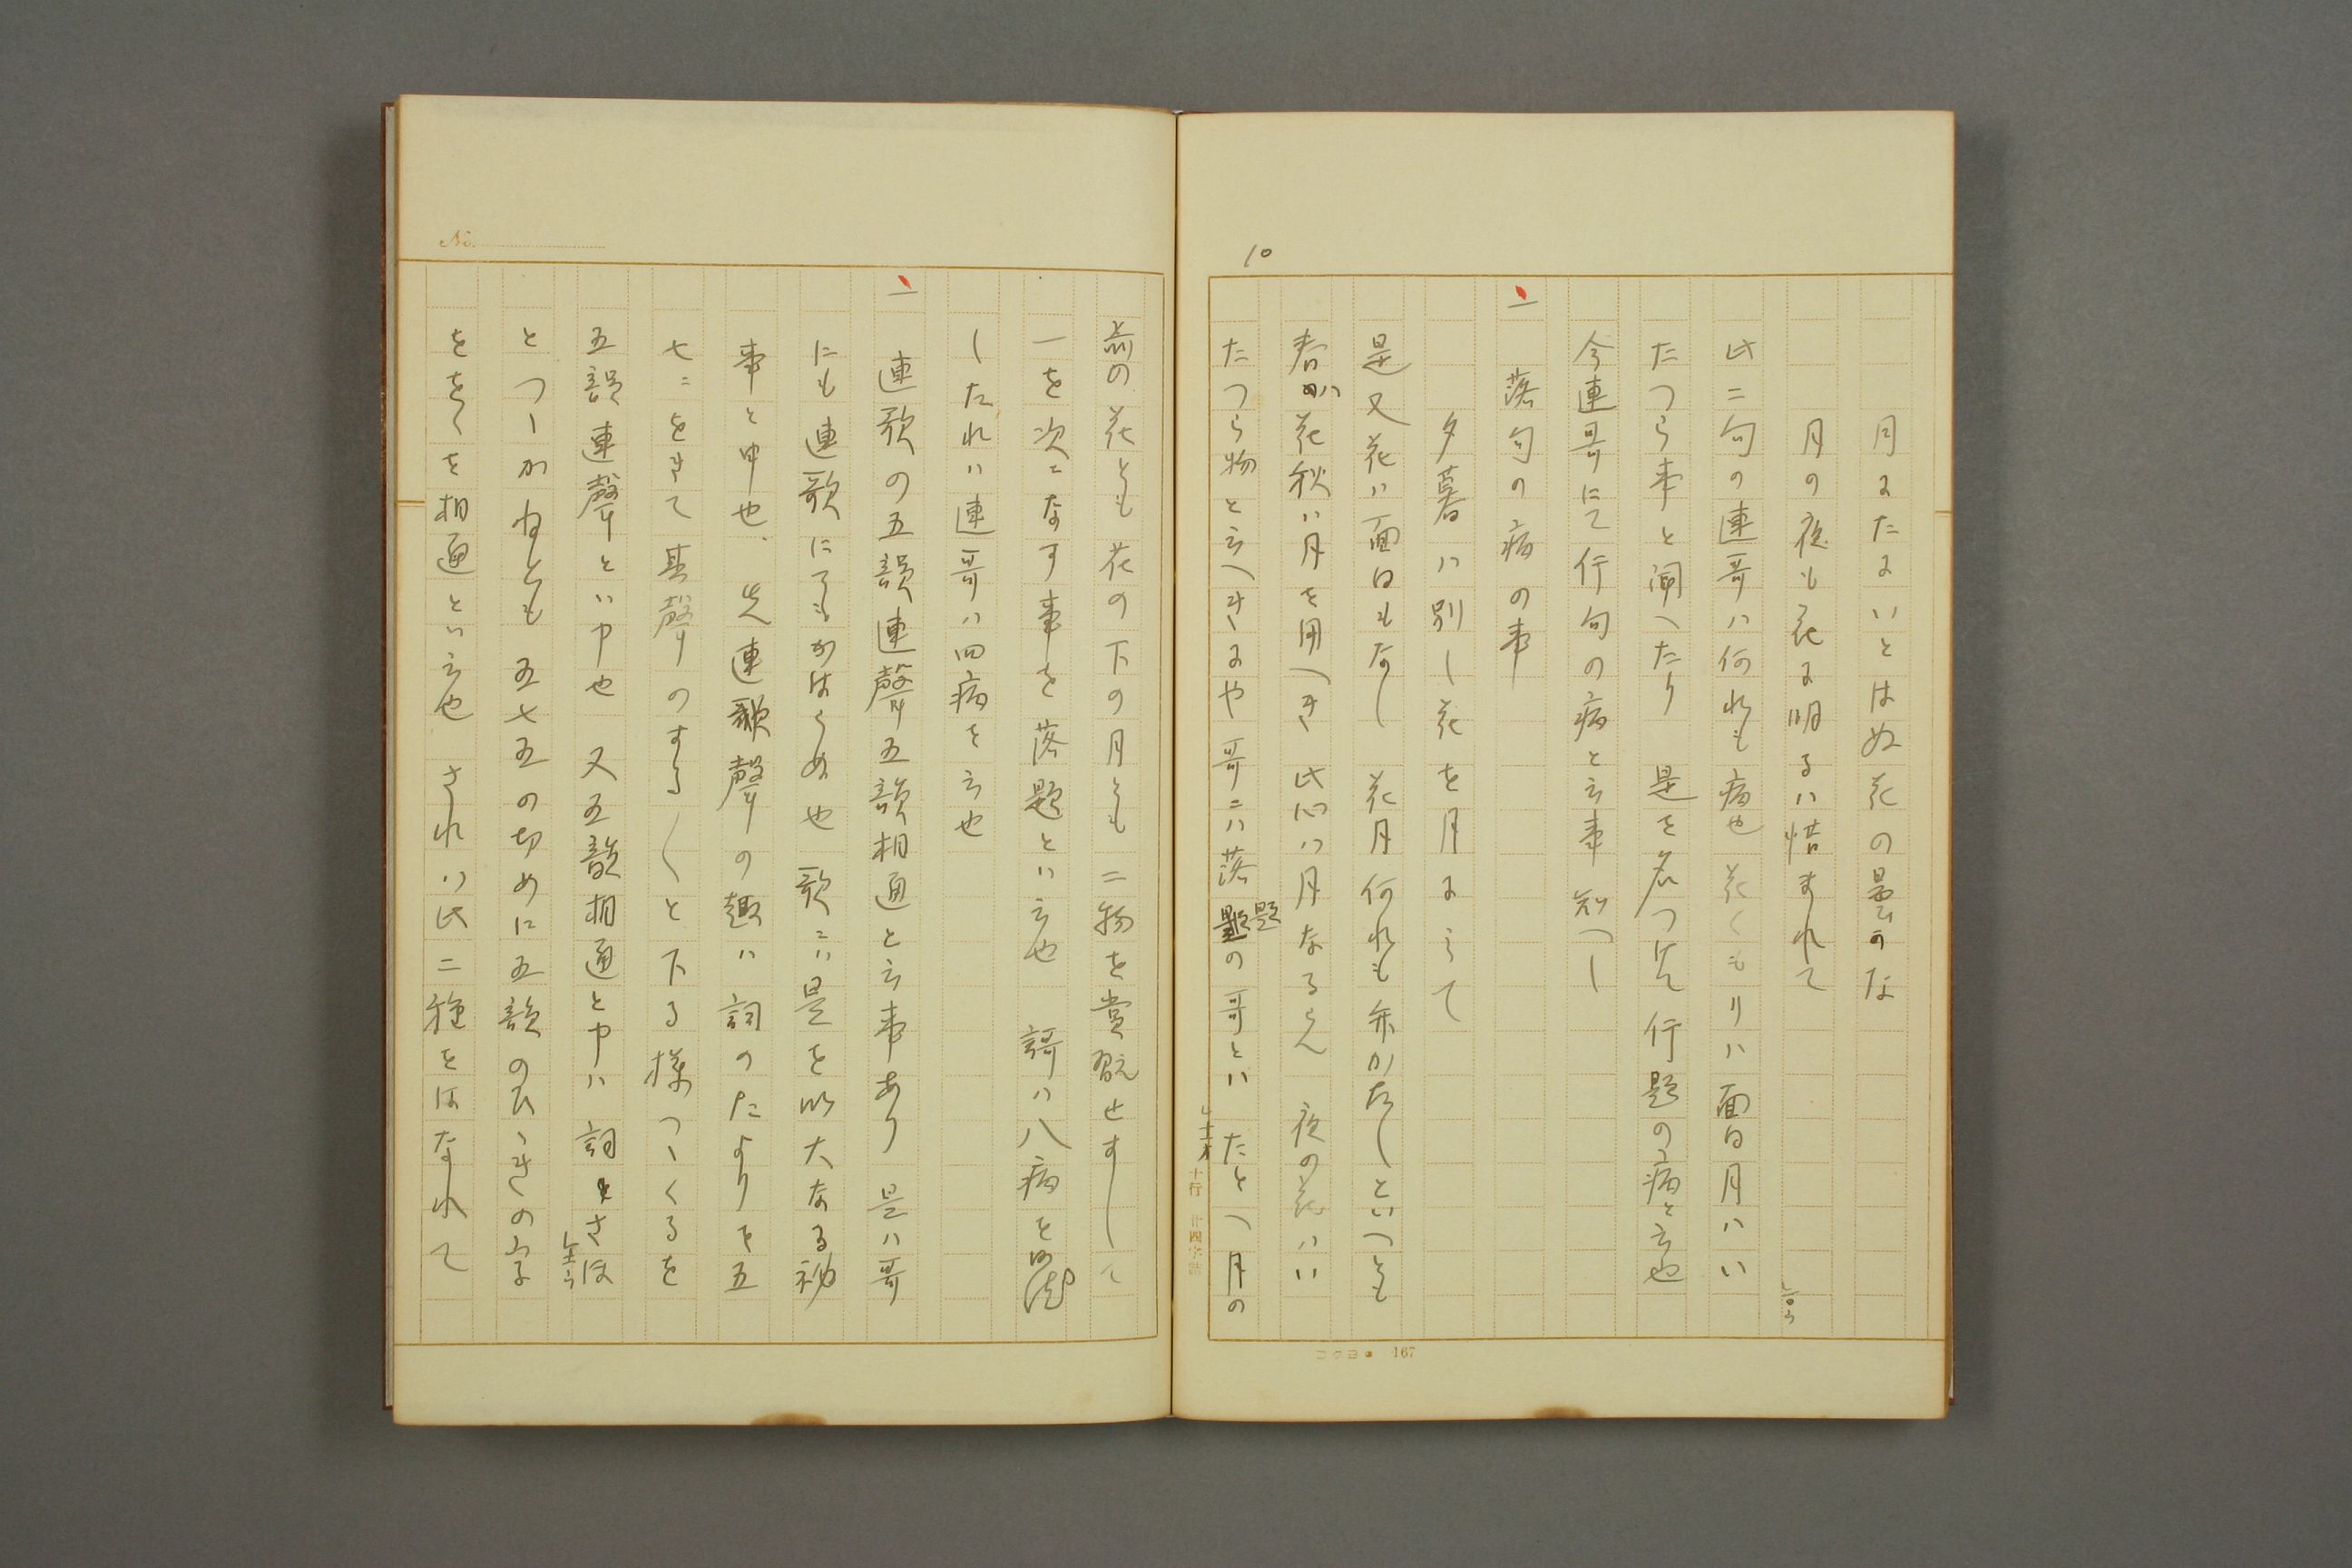 10
月またまいとはぬ花の曇かな
月の夜も花ま明るハ惜まれて
此二句の連哥ハ何れも病也 花くもりハ面白月ハい
たつら事と聞へたり 是を名つけて行題の病と云也
今連哥にて行句の病と云事 知へし
一 落句の病の事
夕暮ハ別し花を月まらて
是又花ハ面白もなし 花月何れも分かたしといへとも
春ハ花秋ハ月を用へき 此心ハ月なるらん 夜の花ハい
たつら物と云へきまや 哥ニハ落題の哥とハ たとへ月の
前の花とも花の下の月とも二物を賞翫せすして
一を次ニなす事を落題とハ云也 謌ハ八病を
したれハ連哥ハ四病を云也
一 連歌の五韻連聲五韻相通と云事あり 是ハ哥
にも連歌にてもかはらぬ也 歌ニハ是を以大なる秘
事と申也、先連歌聲の趣ハ詞のたよりを五
七ニをきて其聲のする〱と下る様つゝくるを
五韻連聲とハ申也 又五韻相通と申ハ詞さは
とつゝかねとも五七五の切めに五韻のひゝきの字
をとくを相通といふ也 されハ此二種をはなれて
No.
コクヨ 167
十行 廿四字詰